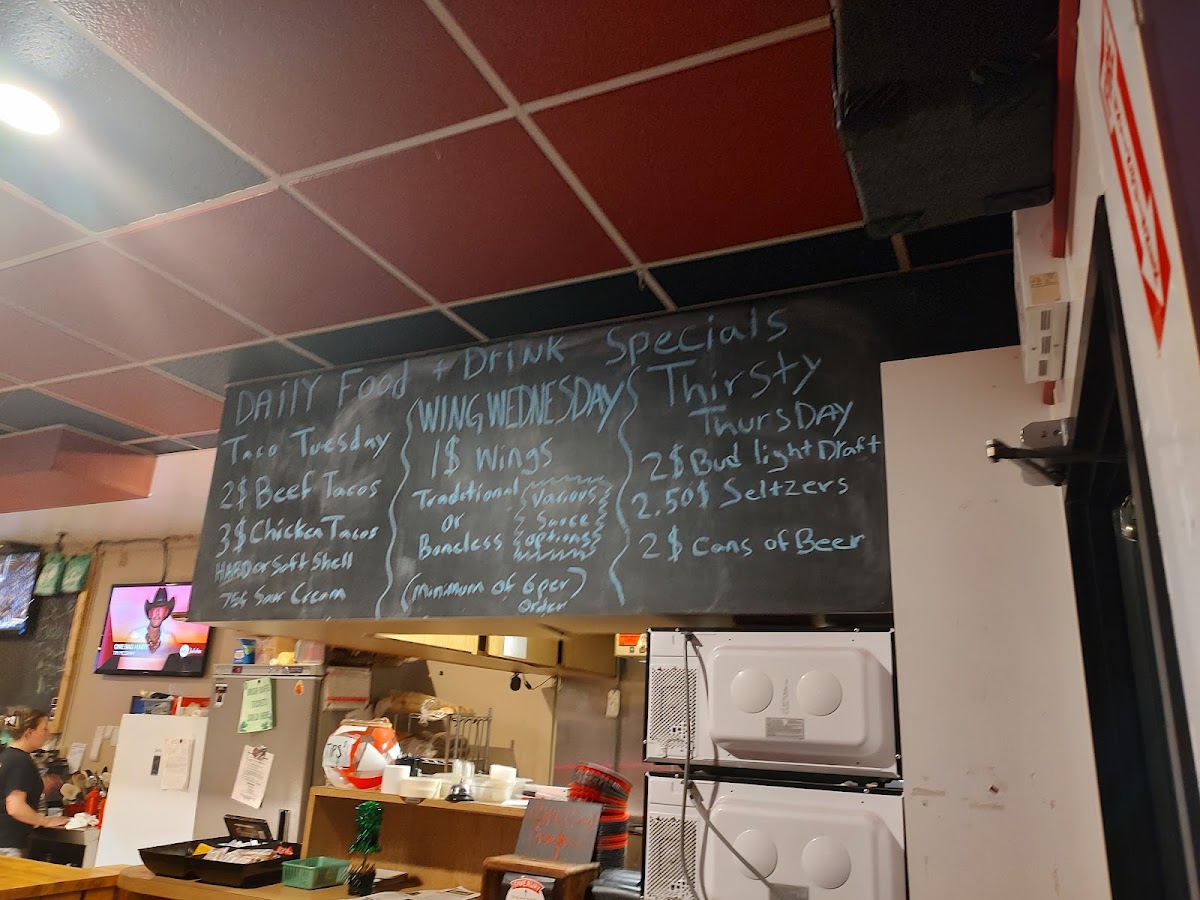 DAilY Food + Drink Specials
Taco Tuesday
2$ Beef Tacos
3$ Chicken Tacos
HARD or Soft Shell
75¢ Sour Cream
WING WEDNESDAY
1$ Wings
Traditional
or
Boneless
Various
Sauce
options
(Minimum of 6 per)
Order
Thirsty
ThursDAY
2$ Bud light Draft
2.50$ Seltzers
2$ Cans of Beer
TIPS